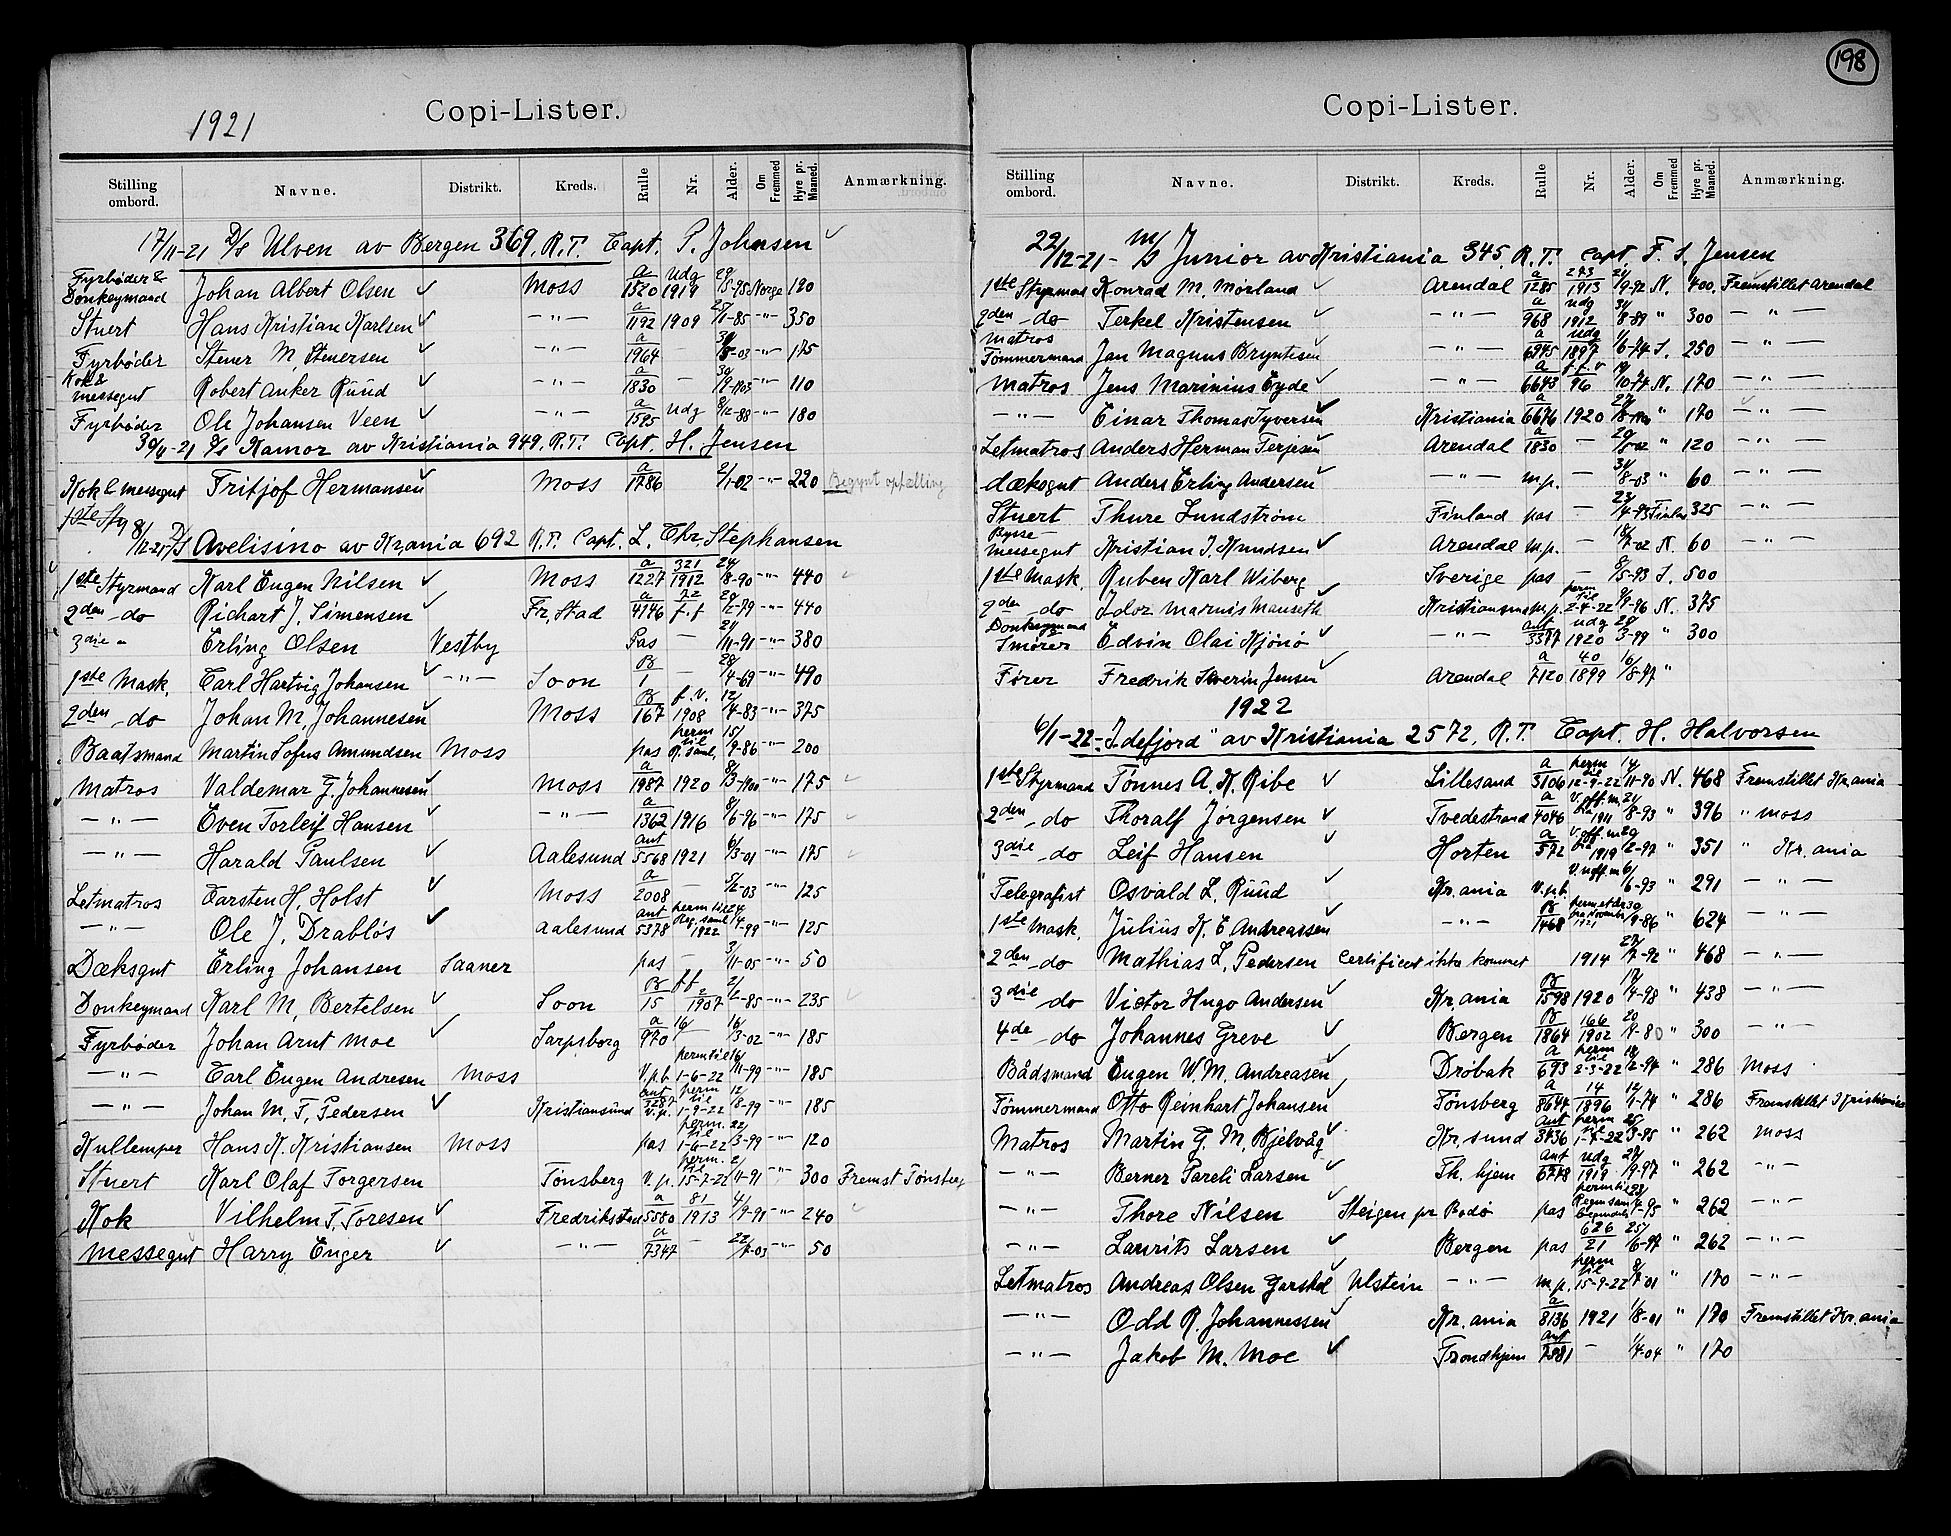 198
1921 Copi-Lister.
Stilling ombord. Navne. Distrikt. Kreds. Rulle Nr. Alder. Om Fremmed Hyre pr. Maaned. Anmærkning.
17/11-21 D/S Ulven av Bergen 369, R.T. Capt. P. Johnsen
Fyrbøder & Donkeymand Johan Albert Olsen Moss a/1520 udg 1919 Norge 190
Stuert Hans Kristian Karlsen -"- a/1192 1909 -"- 350
Fyrbøder Stener M. Stenersen -"- a/1964 -"- 175
Kok & messegut Robert Anker Ruud -"- a/1830 - -"- 110
Fyrbøder Ole Johansen Veen -"- a/1595 udg 8/12-88 -"- 180
30/11-21 D/S Kamor av Kristiania 949. R.T. Capt. H. Jensen
Kok & messegut Fritjof Hermansen Moss a/1786 2/1-02 -"- 220 Begynt optælling
1ste Sty
8/12-21 D/S Avelisino av Krania 692 R.T. Capt. L. Chr. Stephansen
1ste Styrmand Karl Eugen Nilsen Moss a/1227 321/1912 24/8-90 -"- 440
2den do Richart J. Simensen Fr.stad a/4146 72/f.f -"- 440
3die " Erling Olsen Vestby Pas - 21/11-91 -"- 380
1ste Mask. Carl Hartvig Johansen -"- Soon B/1 - 28/4-69 -"- 490
2den do Johan M. Johannesen Moss B/167 f.v. 1908 12/4-83 -"- 375
Baatsmand Martin Sofus Amundsen Moss pas perm til R. Saml. 15/9-86 -"- 200
Matros Valdemar G. Johannesen Moss a/1987 1920 8/3-1900 -"- 175
-"- Even Torleif Hansen -"- a/1362 1916 8/6-96 -"- 175
-"- Harald Paulsen Aalesund ant/5568 1921 6/3-01 -"- 175
Letmatros Carsten H. Holst Moss a/2008 - 5/2-03 -"- 125
-"- Ole J. Drabløs Aalesund ant/5378 perm til Reg. saml 1922 24/4-99 -"- 125
Dæksgut Erling Johansen Saaner pas - 3/11-05 -"- 50
Donkeymand Karl M. Bertelsen Soon B/15 ff 2/1907 2/2-85 -"- 235
Fyrbøder Johan Arnt Moe Sarpsborg a/970 16 16/3-02 -"- 185
-"- Carl Eugen Andresen Moss V.p.b. perm til 1-6-22 16/11-99 -"- 185
-"- Johan M. F. Pedersen Kristiansund ant/3287 V.p. perm til 1-9-22 12/8-99 -"- 185
Kullemper Hans K. Kristiansen Moss pas perm. til 1-6-22 22/3-99 -"- 120
Stuert Karl Olaf Torgersen Tønsberg V.p. perm. til 15-7-22 2/4-91 -"- 300 Fremst Tønsberg
Kok Vilhelm F. Toresen Fredrikstad a/5580 81/1913 4/9-91 -"- 240
Messegut Harry Enger -"- a/7347 - 22/7-03 -"- 50
Copi-Lister.
Stilling ombord. Navne. Distrikt. Kreds. Rulle Nr. Alder. Om Fremmed Hyre pr. Maaned. Anmærkning.
22/12-21- M/S Junior av Kristiania 345, R.T. Capt. F. S. Jensen
1ste Styrmas Konrad M. Mørland Arendal a/1285 293/1913 21/9-92 N. 400. Fremstillet Arendal
2den do Terkel Kristensen -"- a/968 udg 1912 31/8-89 " 300 -"-
Matros Tømmermand Jan Magnus Bryntesen -"- a/6945 udg 1897 11/6-74 S. 250 -"-
Matros Jens Marinius Eyde -"- a/6643 f.f.v 96 19/10-74 N. 170 -"-
-"- Einar Thomas Syversen Kristiania a/6676 1920 " 170 -"-
Letmatros Anders Herman Terjesen Arendal a/1830 - " 120 -"-
dæksgut Anders Erling Andersen -"- m.p. - 31/8-03 " 60 -"-
Stuert Thure Lundstrøm Finland pas - 325 -"-
Bysse- messegut Kristian J. Knudsen Arendal m.p. - 18/7-02 N. 60 -"-
1ste Mask. Ruben Karl Wiberg Sverige pas - 8/5-93 S. 500
2den do Idor Marius Manseth Kristiansund m.p. perm til 2-4-22 9/9-96 N. 375
Donkeymand Smører Edvin Olai Kjönö -"- ant/3397 udg 1920 28/3-99 " 300
Fører Fredrik Severin Jensen Arendal a/7120 40/1899 16/8-77 "
1922
6/1-22- "Idefjord" av Kristiania 2572, R.T. Capt. H. Halvorsen
1ste Styrmand Tønnes A. K. Ribe Lillesand a/3106 perm til 12-9-22 14/11-90 N. 468 Fremstillet Kr.ania
2den do Thoralf Jørgensen Tvedestrand a/4046 1911 21/8-93 " 396 " Moss
3die do Leif Hansen Horten a/572 1919 29/2-97 " 351 " Kr.ania
Telegrafist Osvald L. Ruud Kr.ania V.p.b. 6/6-93 " 291 -"-
1ste Mask. Julius K. E Andreassen -"- B/1468 1921 30/9-86 " 624 -"-
2den do Mathias L. Pedersen Certificat ikke kommet 1914 27/7-92 " 468 -"-
3die do Victor Hugo Andersen Kr.ania B/1598 1920 17/4-98 " 438 -"-
4de do Johannes Greve Bergen B/1864 166/1902 20/4-80 " 300 -"-
Bådsmand Eugen W. M. Andreasen Drøbak a/693 perm til 2-3-22 18/2-94 " 286 Moss
Tømmermand Otto Reinhart Johansen Tønsberg a/8644 14/1896 12/1-74 " 286 Fremstillet Kristiania
Matros Martin G. M. Bjelvåg Kr.sund ant/3436 perm til 1-4-22 25/3-95 " 262 Moss
-"- Berner Pareli Larsen Th.hjem ant/6778 udg 1919 27/9-97 " 262 -"-
-"- Thore Nilsen Steigen pr Bodø pas " 262 -"-
-"- Laurits Larsen Bergen pas 626/21 25/6-97 " 262 -"-
Letmatros Andreas Olsen Garshol Ulstein -"- m.p. perm til 15-9-22 8/7-01 " 170 -"-
-"- Odd R. Johannessen Kr.ania a/8136 1921 1/8-01 " 170 Fremstillet Kr.ania
-"- Jakob M. Moe Trondhjem ant/7581 - 1/4-04 " 170